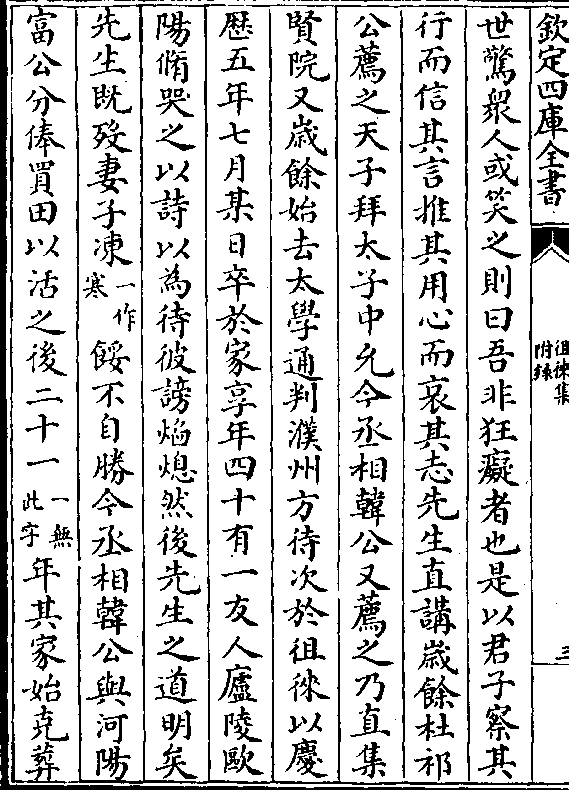 欽定四庫全書
徂徠集
附錄
三
世驚衆人或笑之則曰吾非狂癡者也是以君子察其
行而信其言推其用心而哀其志先生直講歲餘杜祁
公薦之天子拜太子中允今丞相韓公又薦之乃直集
賢院又歲餘始去太學通判濮州方待次於徂徠以慶
厯五年七月某日卒於家享年四十有一友人廬陵歐
陽脩哭之以詩以為待彼謗焰熄然後先生之道明矣
先生既殁妻子凍一作寒餒不自勝今丞相韓公與河陽
富公分俸買田以活之後二十一一無此字年其家始克葬